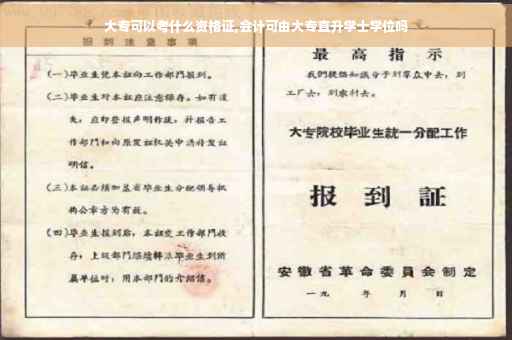 大专可以考什么资格证,会计可由大专直升学士学位吗
报到注意事项
(一)毕业生凭本证向工作部门报到。
(二)毕业生对本证应注意保存。如有遗
失,应即登报声明作废,并报告工
作部门和向原发证机关申请补发证
明信。
(三)本证必须加盖省毕业生分配领导机
构公章方为有效。
(四)毕业生报到后,本证交工作部门收
存;上级部门
毕业生到所
属单位时,用本部门的介绍信。
最高指示
我们提倡知识分子到群众中去,到
工厂去,到农村去。
大专院校毕业生統一分配工作
报到証
安徽省革命委員会制定
一九 年 月 日